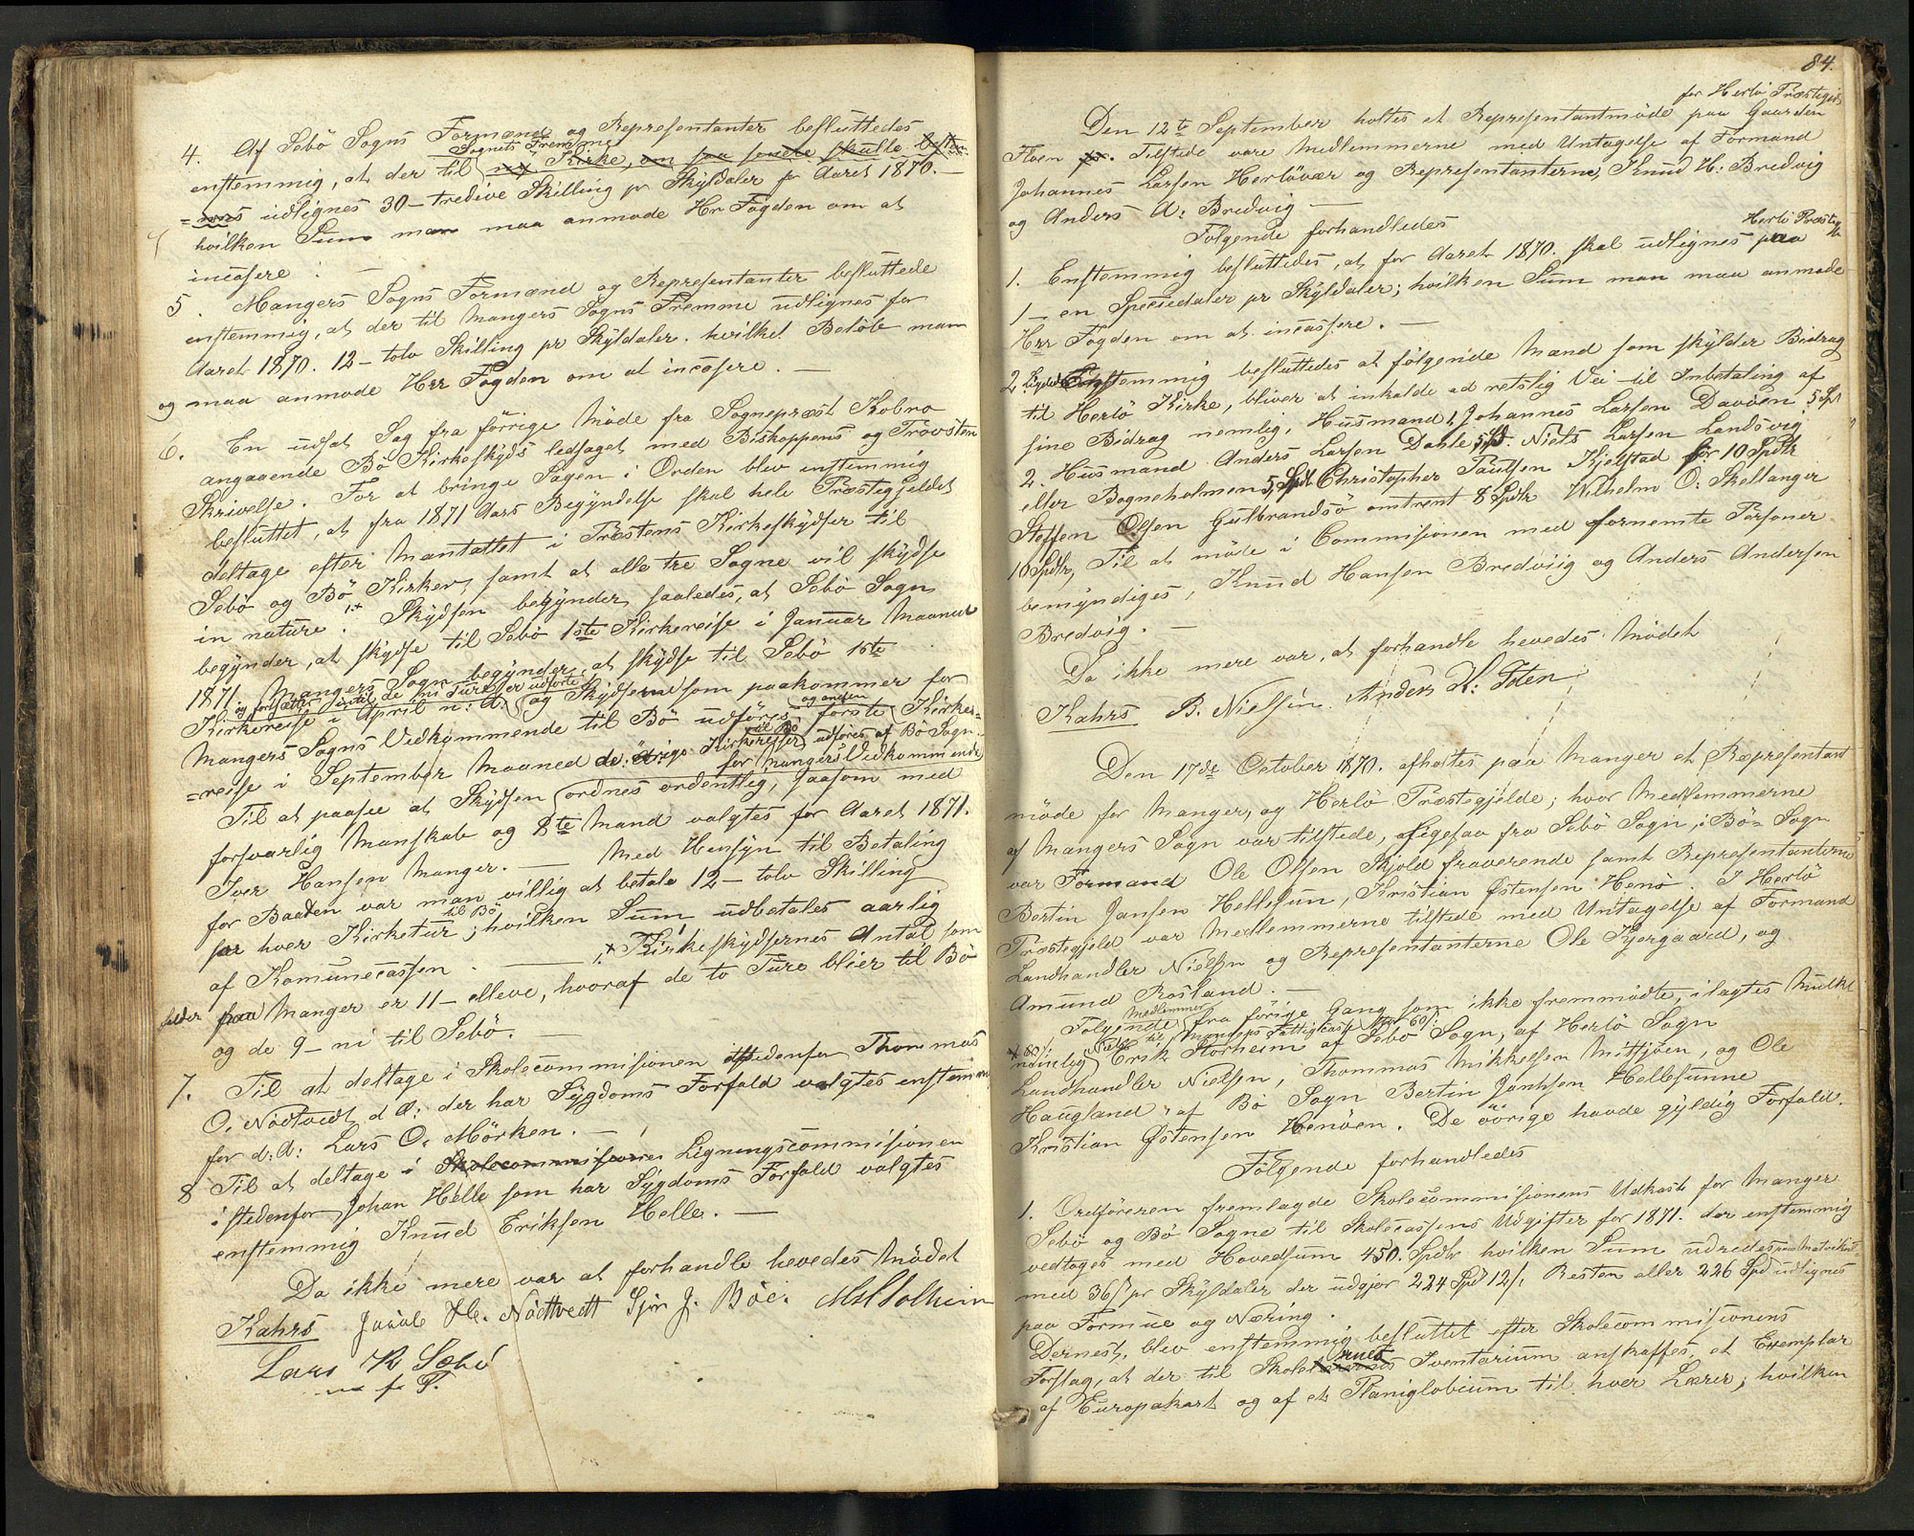 4. Af Sebö Sogns Formænd og Repræsentanter besluttedes
enstemmig, at der til Sognets Fremme ny Kirke, om saa ſende skulle
udlignes 30 - tredive Skilling pr Skÿldaler for Aaret 1870. —
hvilken Sum man maa anmode Hr Fogden om at
incasere. —
5. Mangers Sogns Formænd og Repræsentanter besluttede
enstemmig, at der til Mangers Sogns Fremme udlignes for
Aaret 1870. 12 - tolv Skilling pr Skÿldaler. hvilket Belöb man
og maa anmode Herr Fogden om at incasere. —
6. En udsat Sag fra förrige Möde fra Sognepræst Kobro
angaaende Bö Kirkeskÿds ledsaget med Biskoppens og Provsten
Skrivelse. For at bringe Sagen i Orden blev enstemmig
besluttet, at fra 1871 Aars Begÿndelse skal hele Præstegjeldet
deltage efter Mantallet i Præstens Kirkeskÿdser til
Sebö og Bö Kirker, samt at alle tre Sogne vil skÿdse
in nature. 1+ Skÿdsen begÿnder saaledes, at Sebö Sogn
begÿnder, at skÿdse til Sebö 1ste Kirkereise i Januar Maaned
1871, Mangers Sogn begÿnder, at skÿdse til Sebö 1ste
og fortsætter indtil de ni Ture er udförte
Kirkereise i April n: A: og Skÿdserne som paakommer for
Mangers Sogns Vedkommende til Bö udföres förste og anden Kirke-
=reise i September Maaned de övrige Kirkereiser til Bö udföres af Bö Sogn
for Mangers Vedkommende
Til at paase at Skÿdsen ordnes ordentlig, saasom med
forsvarlig Manskab og 8te Mand valgtes for Aaret 1871.
Iver Hansen Manger. — Med Hensÿn til Betaling
for Baaden var man villig at betale 12 - tolv Skilling
for hver Kirketur til Bö; hvilken Sum udbetales aarlig
af Komunecassen. — 1+ Kirkeskÿdsernes Antal som
falder paa Manger er 11 - elleve, hvoraf de to Ture blier til Bö
og de 9 - ni til Sebö. —
7. Til at deltage i Skolecommisionen istedenfor Thommas
O. Nödtvedt d. A: der har Sÿgdoms Forfald valgtes enstemmig
for d: A: Lars O. Mörken. —
8 Til at deltage i Skolecommisionen Ligningscommisionen
istedenfor Johan Helle som har Sÿgdoms Forfald valgtes
enstemmig Knud Eriksen Helle. —
Da ikke mere var at forhandle hevedes Mödet
Kahrs Jacob H. Nödtvedt Sjur J. Böe. M H Solheim
Lars K Sæbö
m f P.
84.
for Herlö Præstegjeld
Den 12te September holtes et Repræsentantmöde paa Gaarden
Floen. Tilstede vare Medlemmerne med Untagelse af Formand
Johannes Larsen Herlövær og Repræsentanterne, Knud H: Bredvig
og Anders A: Bredvig —
Fölgende forhandledes
1. Enstemmig besluttedes, at for Aaret 1870. skal udlignes paa Herlö Præstegj.
1 - en Speciedaler pr Skÿldaler; hvilken Sum man maa anmode
Herr Fogden om at incassere. —
2. Ligeledes Enstemmig besluttedes at fölgende Mænd som skÿlder Bidrag
til Herlö Kirke, bliver at inkalde ad retslig Vei til Inbetaling af
sine Bidrag nemlig, Husmand 1, Johannes Larsen Davöen 5 Spd
2. Husmand Anders Larsen Dahle 5 Spd. Niels Larsen Landsvig
eller Bogneholmen 5 Spd. Christopher Paulsen Kjelstad for 10 Spdlr
Steffen Olsen Gulbrandsö omtrent 8 Spdlr Wilhelm O: Skellanger
10 Spdlr, Til at möde i Commisionen med fornemte Persjoner
bemÿndiges, Knud Hansen Bredviig og Anders Andersen
Bredvig. —
Da ikke mere var, at forhandle hevedes Mödet
Kahrs B. Nielsen. Anders H: Feten
Den 17de October 1870. afholtes paa Manger et Repræsentant
möde for Manger, og Herlö Præstegjelde; hvor Medlemmerne
af Mangers Sogn var tilstede, ligesaa fra Sebö Sogn, i Bö Sogn
var Formand Ole Olsen Skjold fraverende samt Repræsentanterne
Bertin Jansen Hellesun, Kristian Østensen Henö. I Herlö
Præstegjeld var Medlemmerne tilstede med Untagelse af Formand
Landhandler Nielsen og Repræsentanterne Ole Kjergaard, og
Amund Rosland. —
Fölgende Medlemmer fra förrige Gang som ikke fremmödte, ilagtes Mulkt
Erik Storheim af Sebö Sogn, af Herlö Sogn
Landhandler Nielsen, Thommas Mikkelsen Mittjöen, og Ole
Haugland, af Bö Sogn Bertin Janhsen Hellesunne
Kristian Østensen Henöen. De övrige havde gÿldig Forfald.
Fölgende forhandledes
1. Ordföreren fremlagde Skolecommisionens Udkast for Manger
Sebö og Bö Sogne til Skolecassens Udgifter for 1871. der enstemmig
vedtoges med Hovedsum 450. Spdlr hvilken Sum udredes paa Matrikul
med 36 s pr Skÿldaler der udgjör 224 Spd 12 s Resten eller 226 Spd udlignes
paa Formue og Næring.
Dernest, blev enstemmig besluttet efter Skolecommisionens
Forslag, at der til Skolernes Inventarium anskaffes, et Exemplar
af Europakart og af et Planiglobium til hver Lærer; hvilken